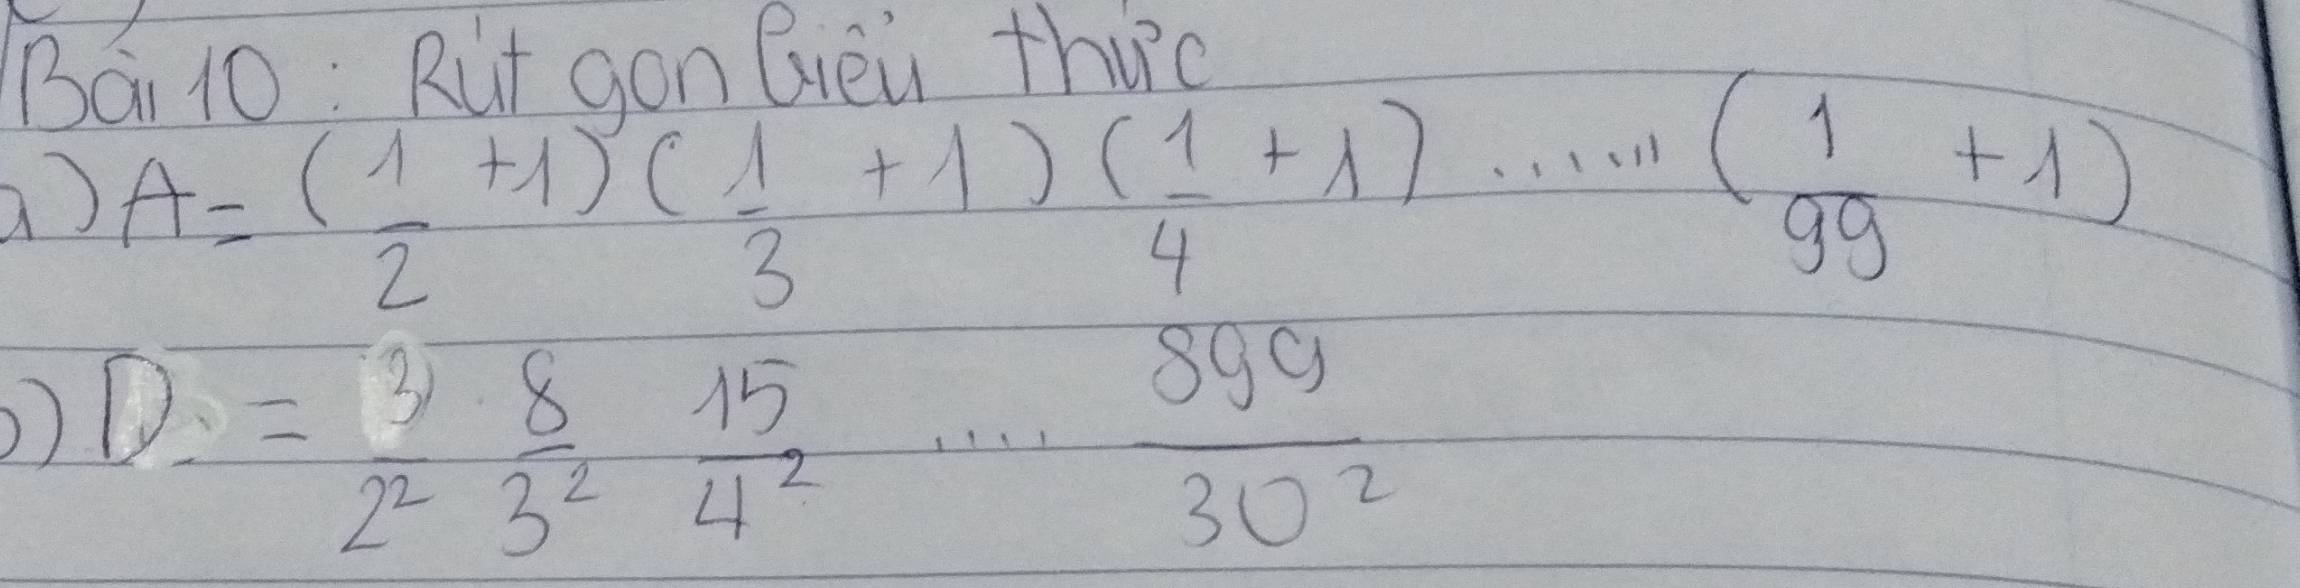 Bài 10: Rút gọn Biểu thức
a) A = (1/2 + 1) (1/3 + 1) (1/4 + 1) ...... (1/99 + 1)
b) D = 3/2² . 8/3² 15/4² .... 899/30²